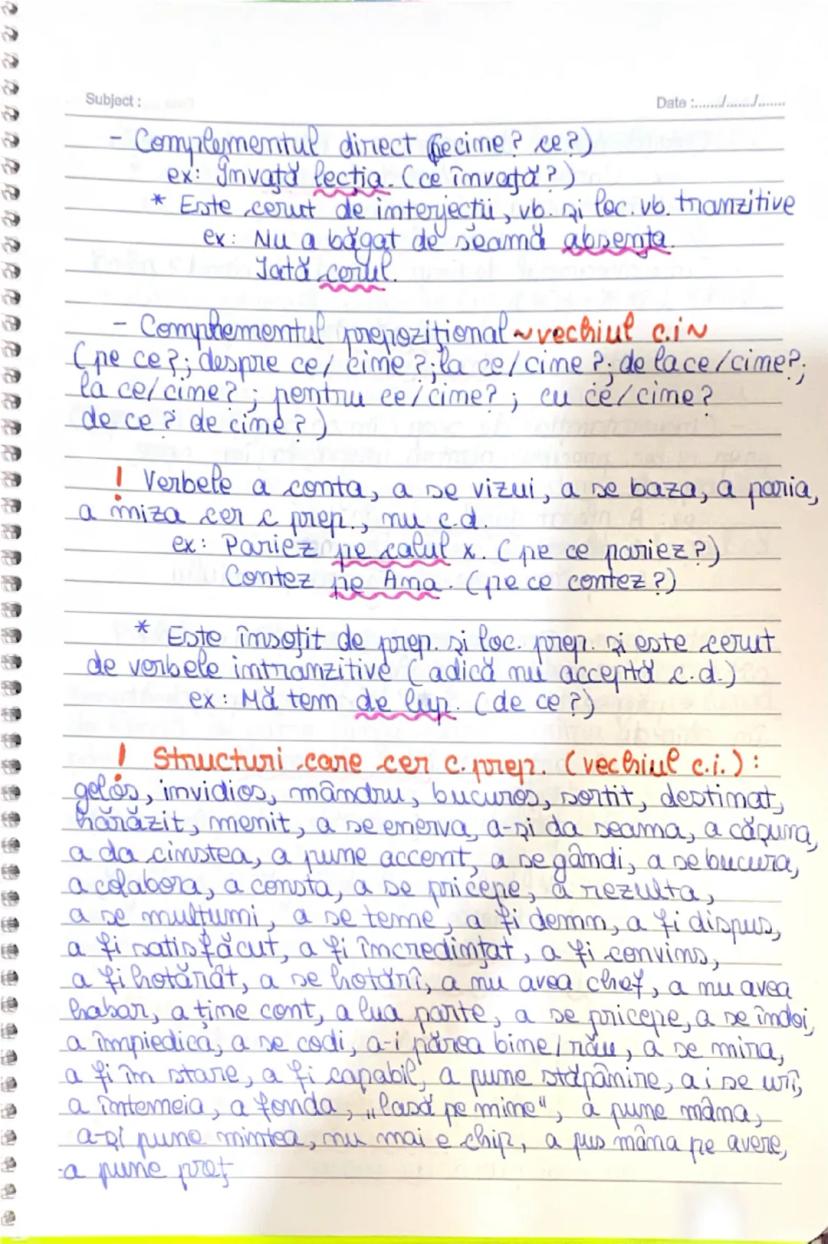 Subject :
Date :....../....../.......
- Complementul direct (pe cine? ce?)
ex: Învață lecția. (ce învață?)
* Este cerut de interjecții, vb. și loc. vb. tranzitive
ex: Nu a băgat de seamă absența.
Iată cerul.
- Complementul prepozițional ~vechiul c.i~
(pe ce?; despre ce/ cine?; la ce/cine?; de la ce/cine?;
la ce/cine?; pentru ce/cine?; cu ce/cine?
de ce? de cine?)
! Verbele a conta, a se vizui, a se baza, a paria,
a miza cer c prep., nu c.d.
ex: Pariez pe calul x. (pe ce pariez?)
Contez pe Ana. (pe ce contez?)
* Este însoțit de prep. și loc. prep. și este cerut
de verbele intranzitive (adică nu acceptă c.d.)
ex: Mă tem de lup. (de ce?)
! Structuri care cer c.prep. (vechiul c.i.):
gelos, invidios, mândru, bucuros, sortit, destinat,
hărăzit, menit, a se enerva, a-și da seama, a cășuna,
a da cinstea, a pune accent, a se gândi, a se bucura,
a colabora, a consta, a se pricepe, a rezulta,
a se mulțumi, a se teme, a fi demn, a fi dispus,
a fi satisfăcut, a fi încredințat, a fi convins,
a fi hotărât, a se hotărî, a nu avea chef, a nu avea
habar, a ține cont, a lua parte, a se pricepe, a se îndoi,
a împiedica, a se codi, a-i părea bine/rău, a se mira,
a fi în stare, a fi capabil, a pune stăpânire, a i se urî,
a întemeia, a fonda, „lasă pe mine", a pune mâna,
a-și pune mintea, nu mai e chip, a pus mâna pe avere,
a pune preț